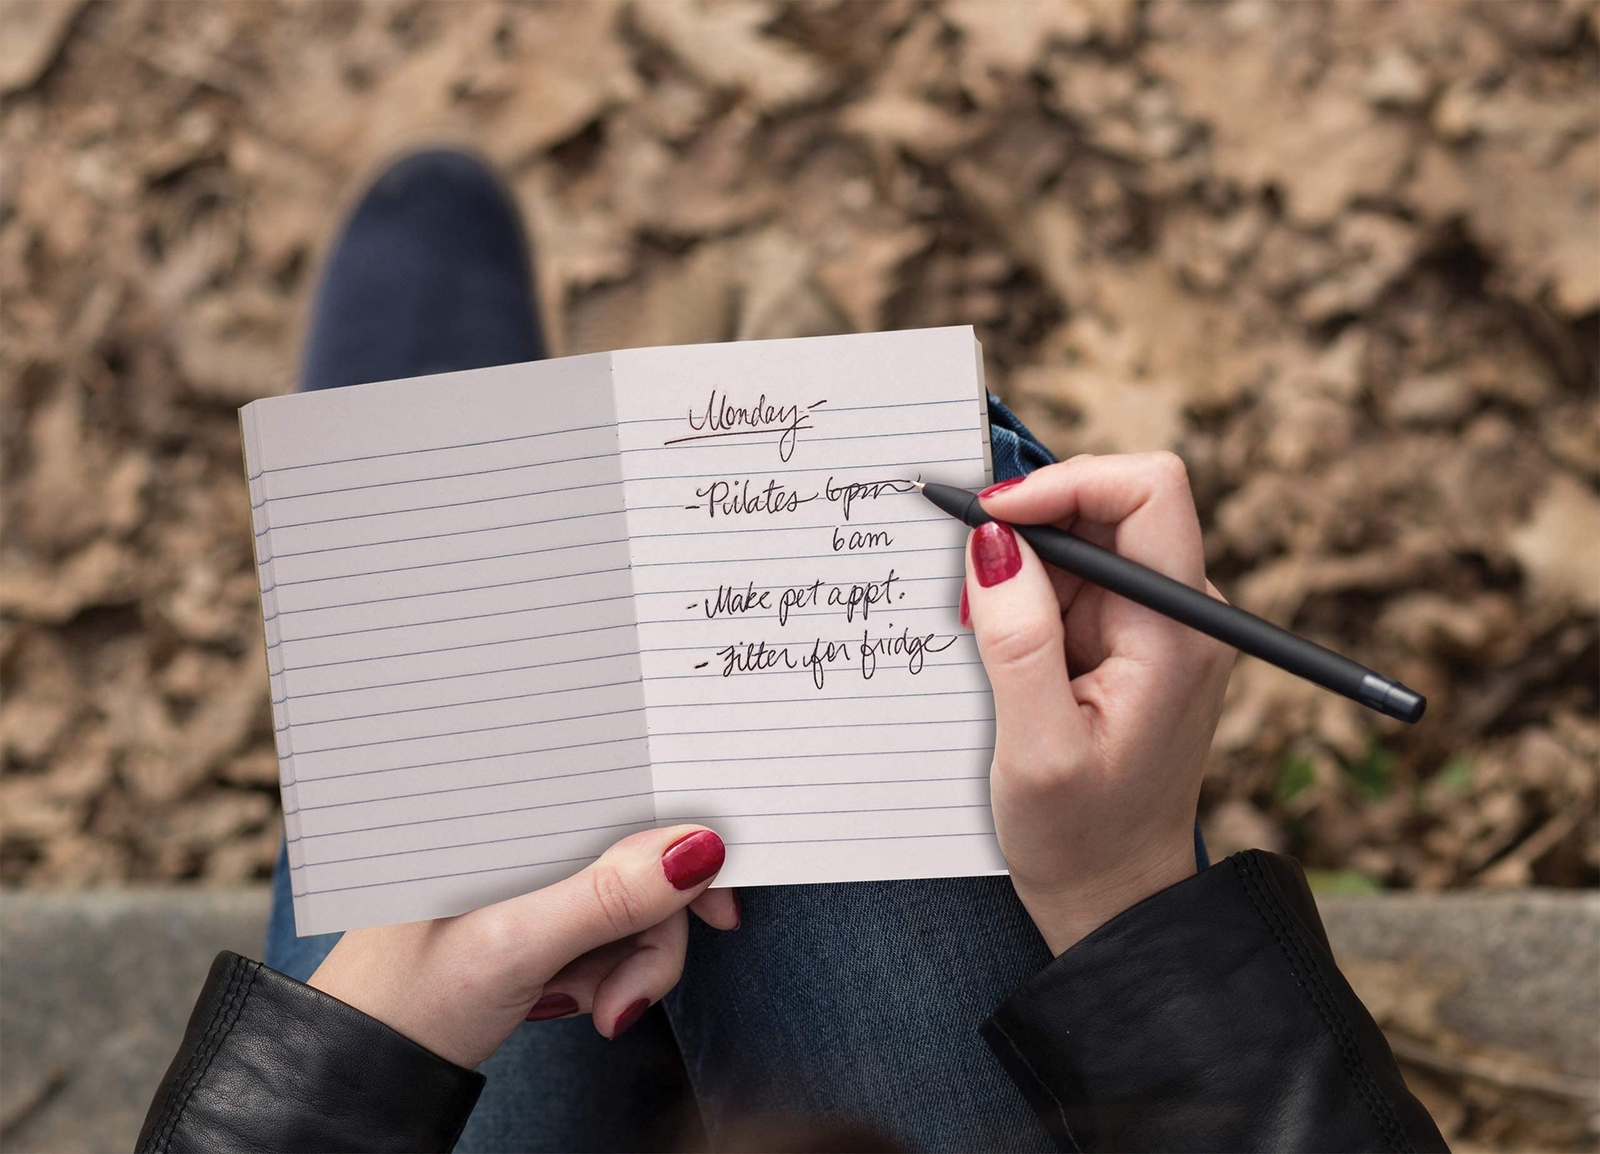 Monday-
-Pilates 6pm
6am
-Make pet appt.
- Filter for fridge